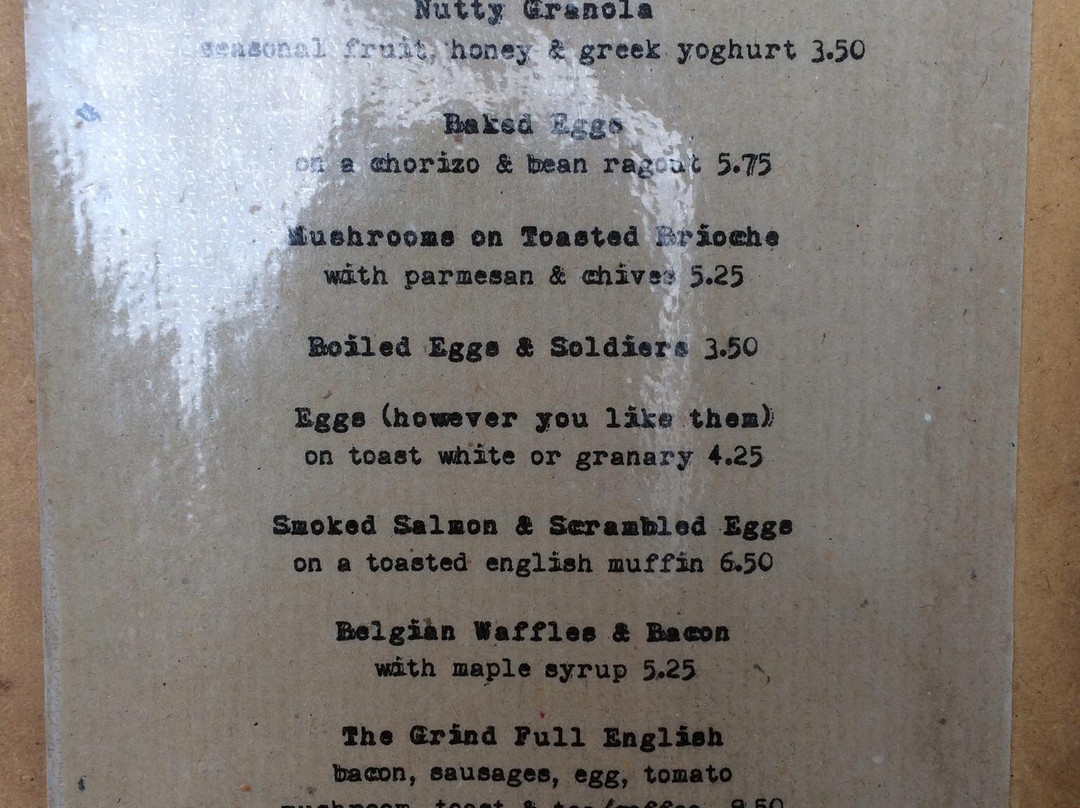 Nutty Granola
seasonal fruit, honey & greek yoghurt 3.50
Baked Eggs
on a chorizo & bean ragout 5.75
Mushrooms on Toasted Brioche
with parmesan & chives 5.25
Boiled Eggs & Soldiers 3.50
Eggs (however you like them)
on toast white or granary 4.25
Smoked Salmon & Scrambled Eggs
on a toasted english muffin 6.50
Belgian Waffles & Bacon
with maple syrup 5.25
The Grind Full English
bacon, sausages, egg, tomato
mushroom, toast & tea/coffee